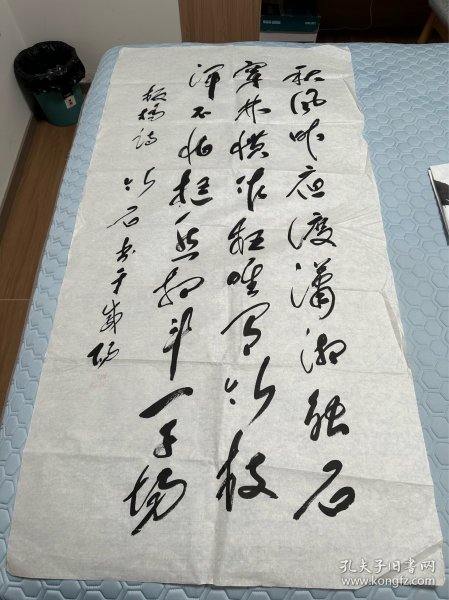 秋风昨夜渡潇湘触石
穿林惯作狂唯有竹枝
浑不怕挺然相斗一千场
板桥诗 竹石书于咸阳
孔夫子旧书网
www.kongfz.com